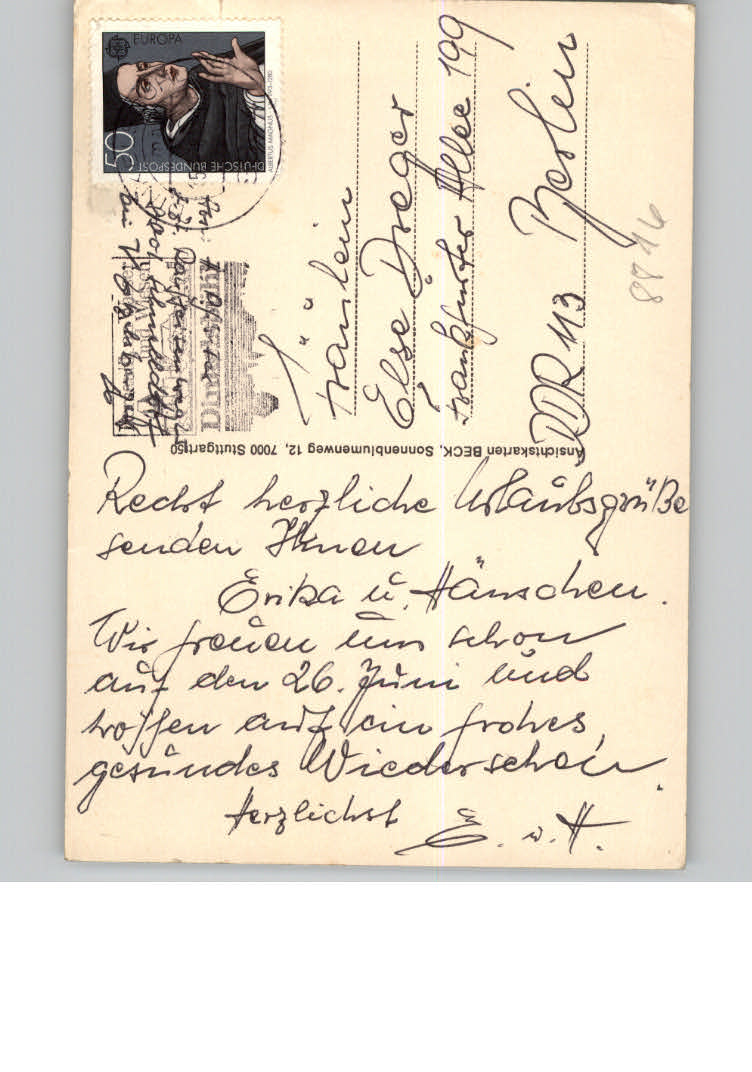 EUROPA
50
DEUTSCHE BUNDESPOST
ALBERTUS MAGNUS 1193-1280
Fräulein
Else Dreger
Frankfurter Allee 199
DDR 113 Berlin
8816
Ansichtskarten BECK, Sonnenblumenweg 12, 7000 Stuttgart 50
Recht herzliche Urlaubsgrüße
senden Ihnen
Erika u. Hänschen.
Wir freuen uns schon
auf den 26. Juni und
hoffen auf ein frohes,
gesundes Wiedersehen.
Herzlichst E. u. H.